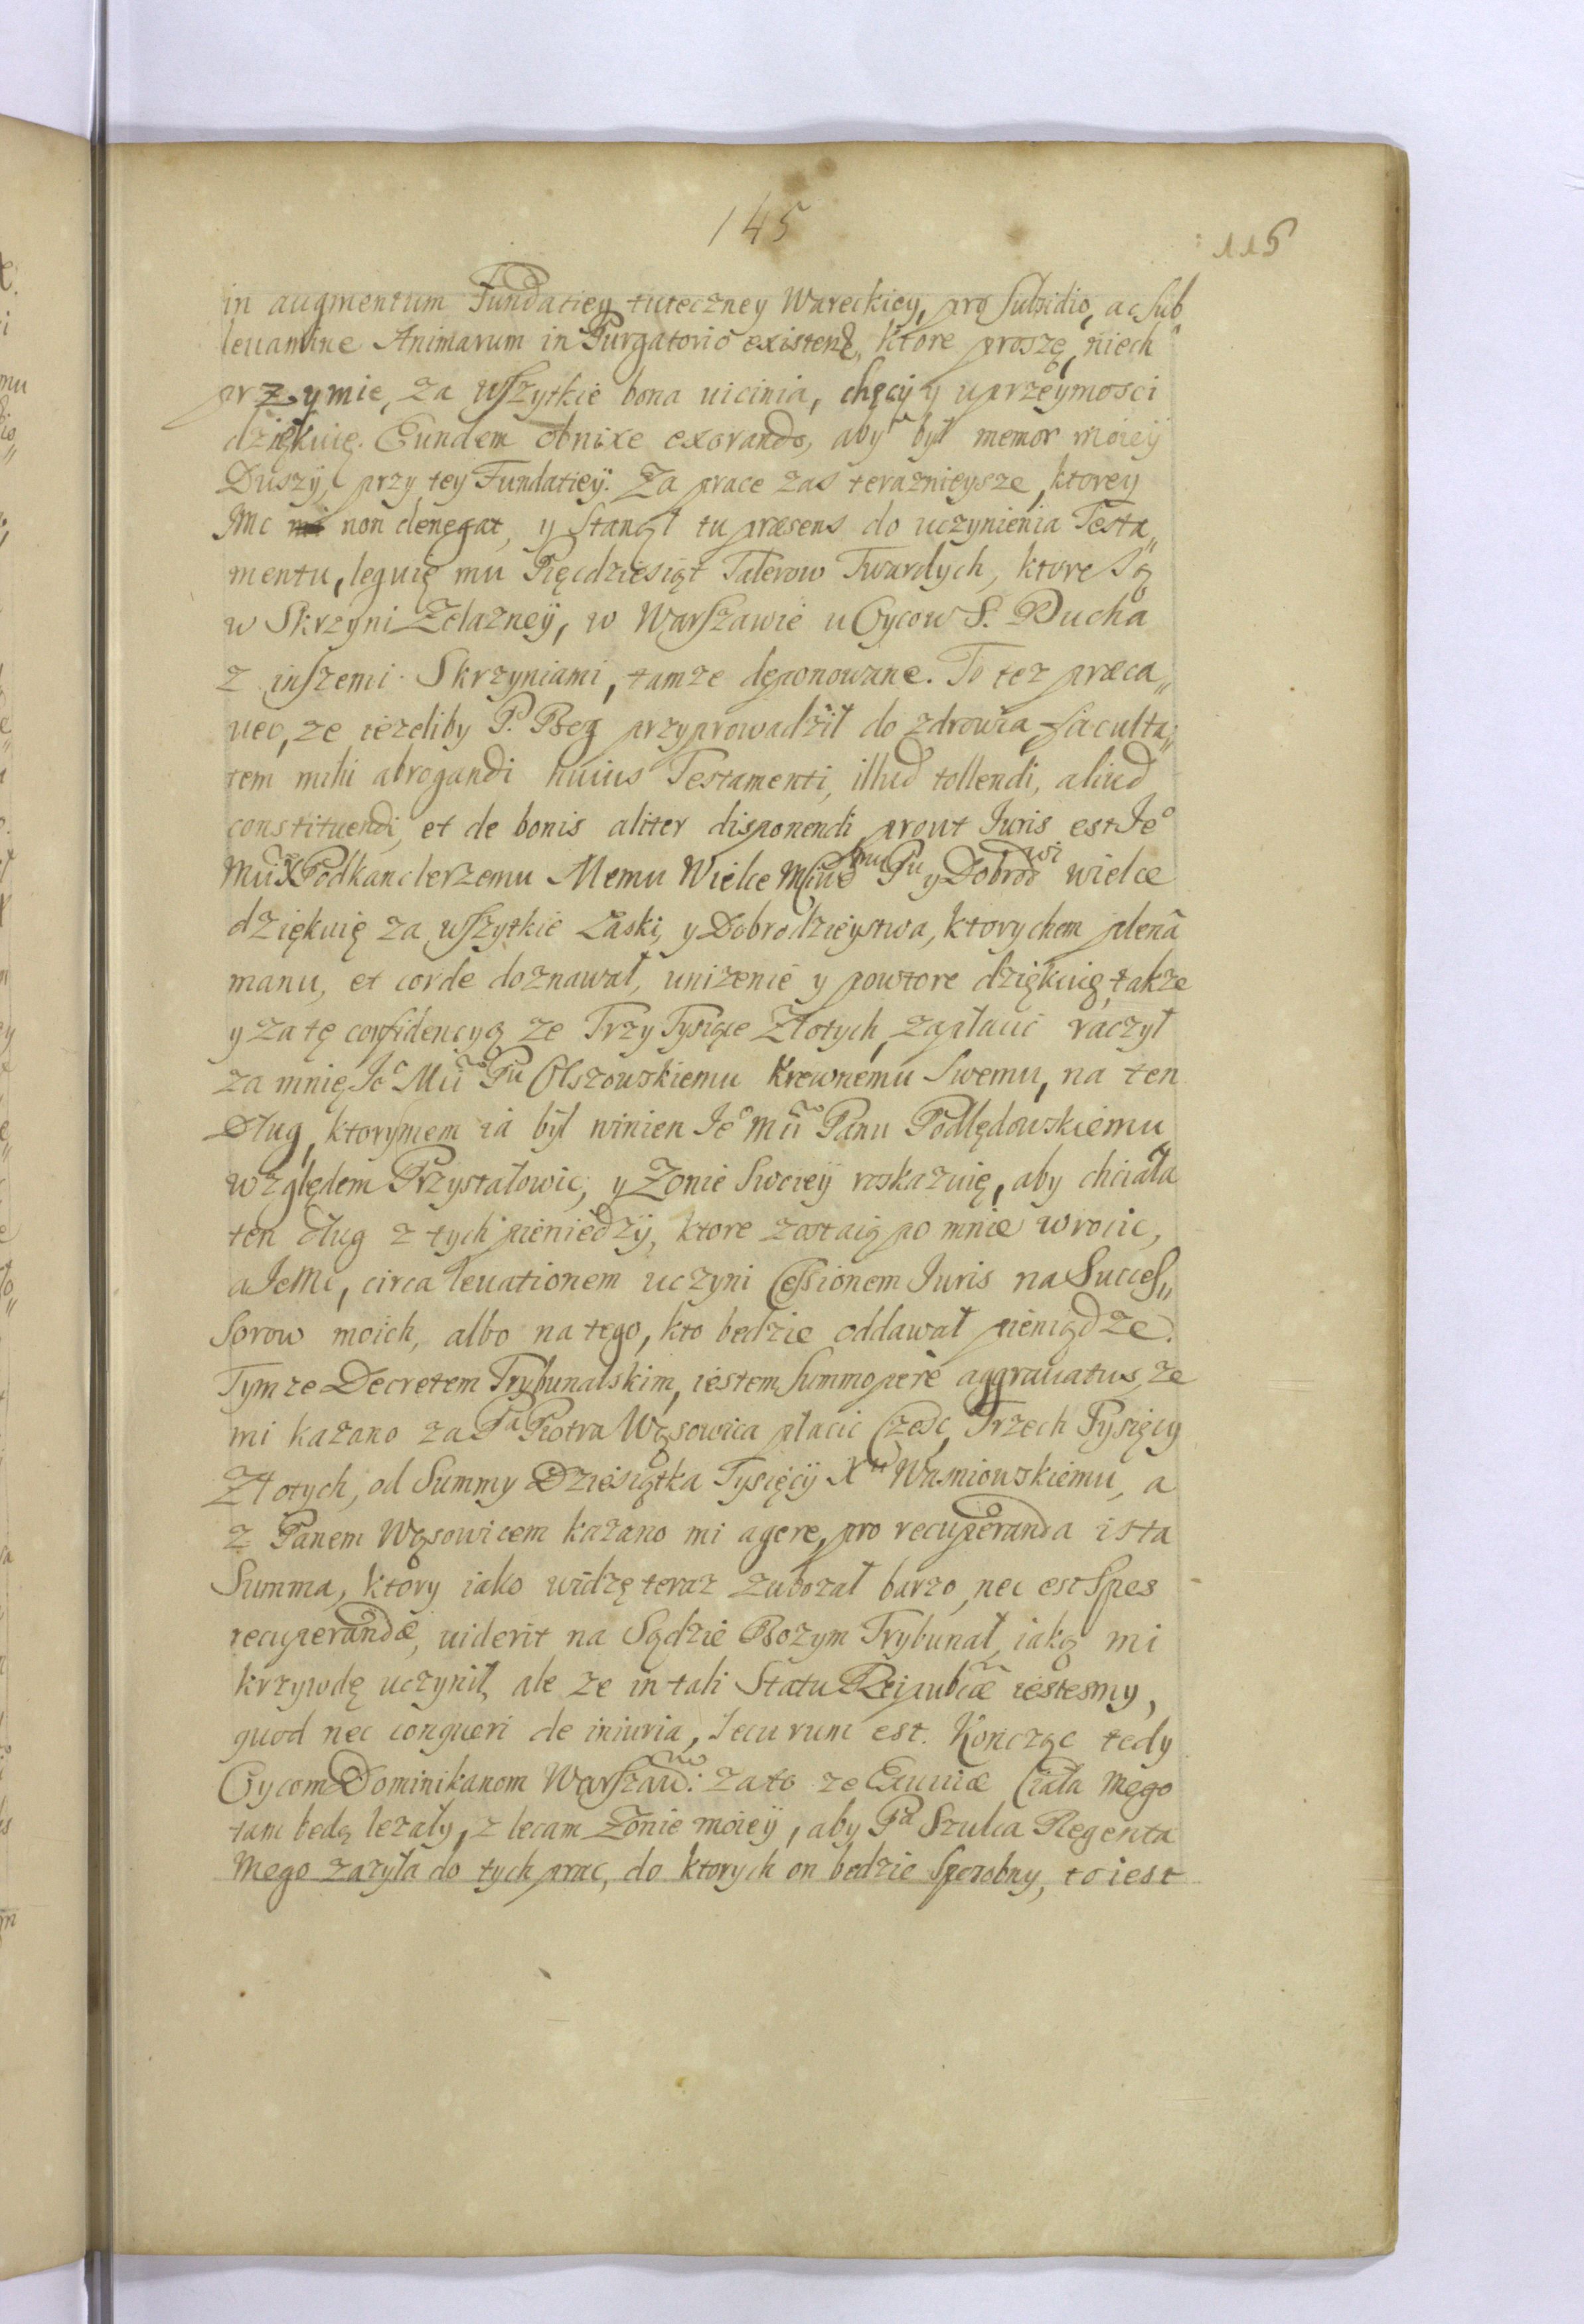 145
115
in augmentum Fundatiey tuteczney Wareckiey, pro Subsidio, ac Sub
leuamine Animarum in Purgatorio existen, ktore proszę niech
przymie, za wszytkie bona uicinia, chęcÿ y uprzeÿmosci
dziękuię. Eundem obnixe exorando, aby był memor moieÿ
Duszÿ, przy tey Fundatieÿ. Za prace zas teraznieysze, ktorey
JMc non denegat, y Stanął tu præsens do uczynienia Testa„
mentu, leguię mu Pięcdziesiąt Talerow Twardych, ktore Są
w Skrzyni Zelazneÿ, w Warszawie u Oycow S. Ducha
z inszemi Skrzyniami, tamze deponowane. To tez præca„
ueo, ze iezeliby P. Beg przyprowadził do zdrowia faculta„
tem mihi abrogandi huius Testamenti, illud tollendi, aliud
constituendi, et de bonis aliter disponendi prout Iuris est Ie͠
Mu͠ X Podkanclerzemu Memu Wielce Mciwemu Pu y Dobrodwi wielce
dziękuię za wszytkie Łaski, y Dobrodzieystwa, ktorychem plenã
manu, et corde doznawał, unizenie y powtore dziękuię, takze
y za tę confidencyą ze Trzy Tysiące Złotych, zapłacić raczył
za mnię Ie͠ Mu͠ Pu Olszowskiemu Krewnemu Swemu, na ten
Dług, ktorymem ia był winien Ie͠ Mu͠ Panu Podlędowskiemu
względem Przystałowic, y Zonie Swoieÿ roskazuię, aby chciała
ten dług z tych pieniedzÿ, ktore zostaią po mnie wrocic,
a IeMc, circa leuationem uczyni Cessionem Iuris na Succes„
Sorow moich, albo na tego, kto bedzie oddawał pieniądze.
Tymze Decretem Trybunalskim, iestem Summopere aggrauatus, ze
mi kazano za Pa Piotra Wąsowica płacic Czesc, Trzech Tysięcy
Złotych, od Summy Dziesiątka Tysięcÿ Xu Wasniowskiemu, a
z Panem Wąsowicem kazano mi agere, pro recuperanda ista
Summa, ktory iako widzę teraz zubozał barzo, nec est Spes
recuperandæ, uiderit na Sądzie Bozym Trybunał, iaką mi
krzywdę uczynił, ale ze in tali Statu Reipubcæ iestesmy,
quod nec conqueri de iniuria, Securum est. Konczęc tedy
Oycom Dominikanom Warszaw: za to ze Exuuiæ Ciała Mego
tam będą lezały, zlecam Zonie moieÿ, aby Pa Szulca Regenta
Mego zazyła do tych prac, do ktorych on bedzie Sposobny, to iest